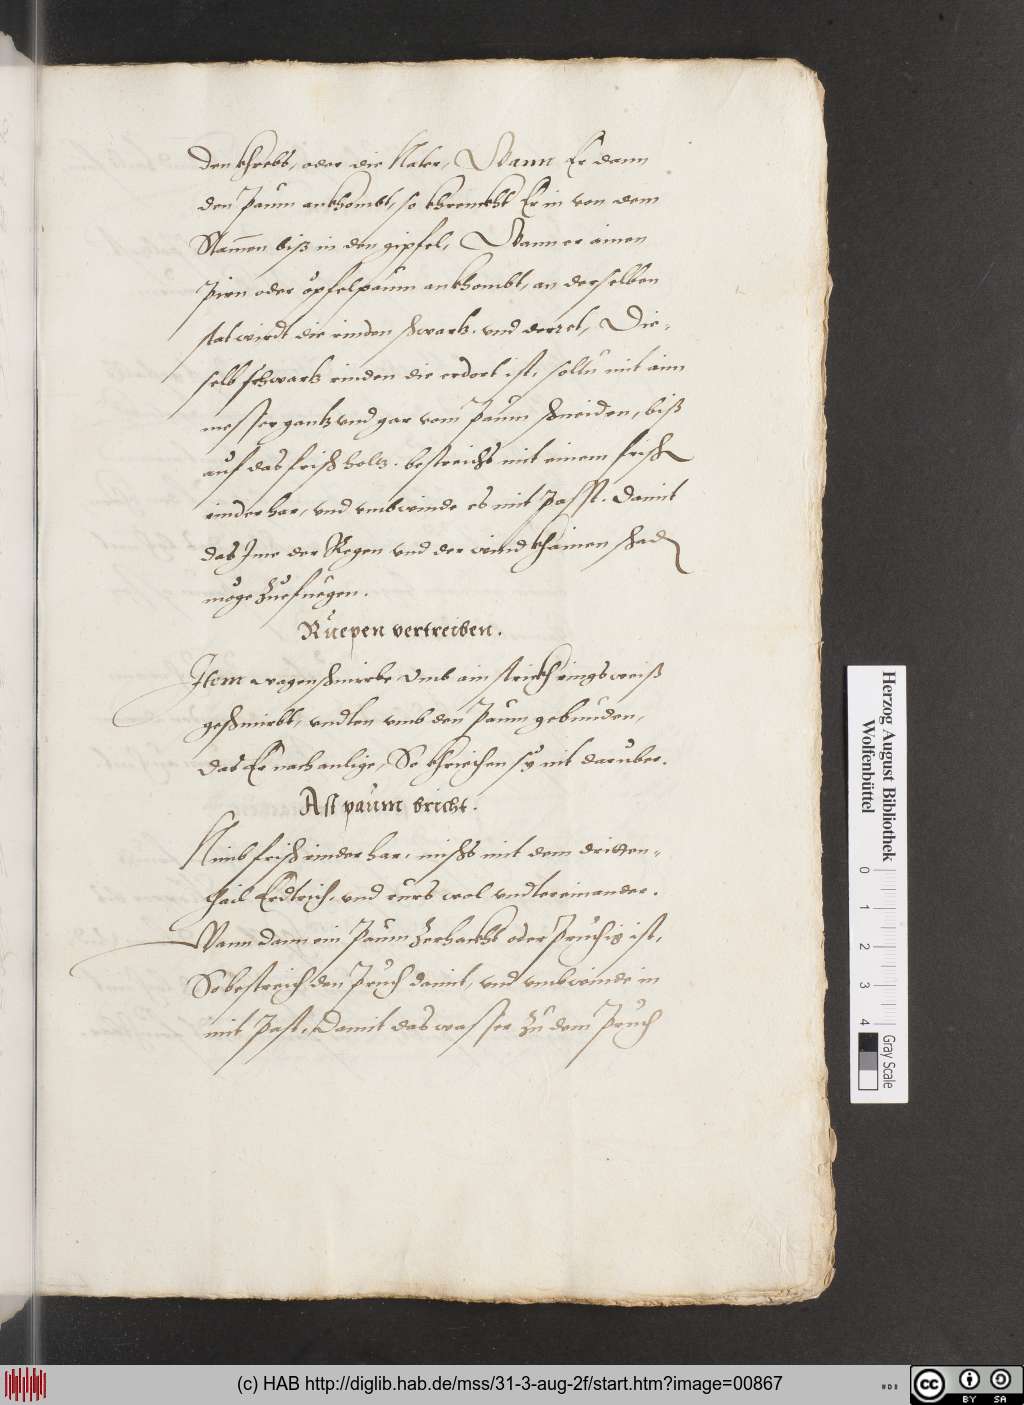 den khrebs, oder die Nater, Wann Er dann
den Paum ankhombt, so khrenckht Er in von dem
Stam̅en biß in den gipfel, Wann er ainen
Pirn oder öpfelpaum ankhombt, an derselben
stat wirdt die rinden schwartz und derret, Die-
selb schwartz rinden die erdort ist, soltu mit aim
messer gantz und gar vom Paum schneiden, biß
auf das frisch holtz. bestreichs mit einem frisch
rinderhar, und umbwinde es mit Passt. Damit
das Ime der Regen und der wind khainen schad
möge zuefuegen.
Rüepen vertreiben.
Item wagenschmirbe umb ain strickh ringsweiß
geschmirbt, undten umb den Paum gebunden,
das Er nach anlige, So khriechen sÿ nit daruber.
Ast paum bricht.
Nimb frisch rinderhar, mischs mit dem dritten-
thail Erdtrich, und rürs wol undtereinander.
Wann dann ein Paum zerhackht oder Pruchig ist,
So bestreich den Pruch damit, und umbwinde in
mit Past, Damit das wasser zu dem Pruch
Herzog August Bibliothek
Wolfenbüttel
0 1 2 3 4
Gray Scale
(c) HAB http://diglib.hab.de/mss/31-3-aug-2f/start.htm?image=00867
cc BY SA